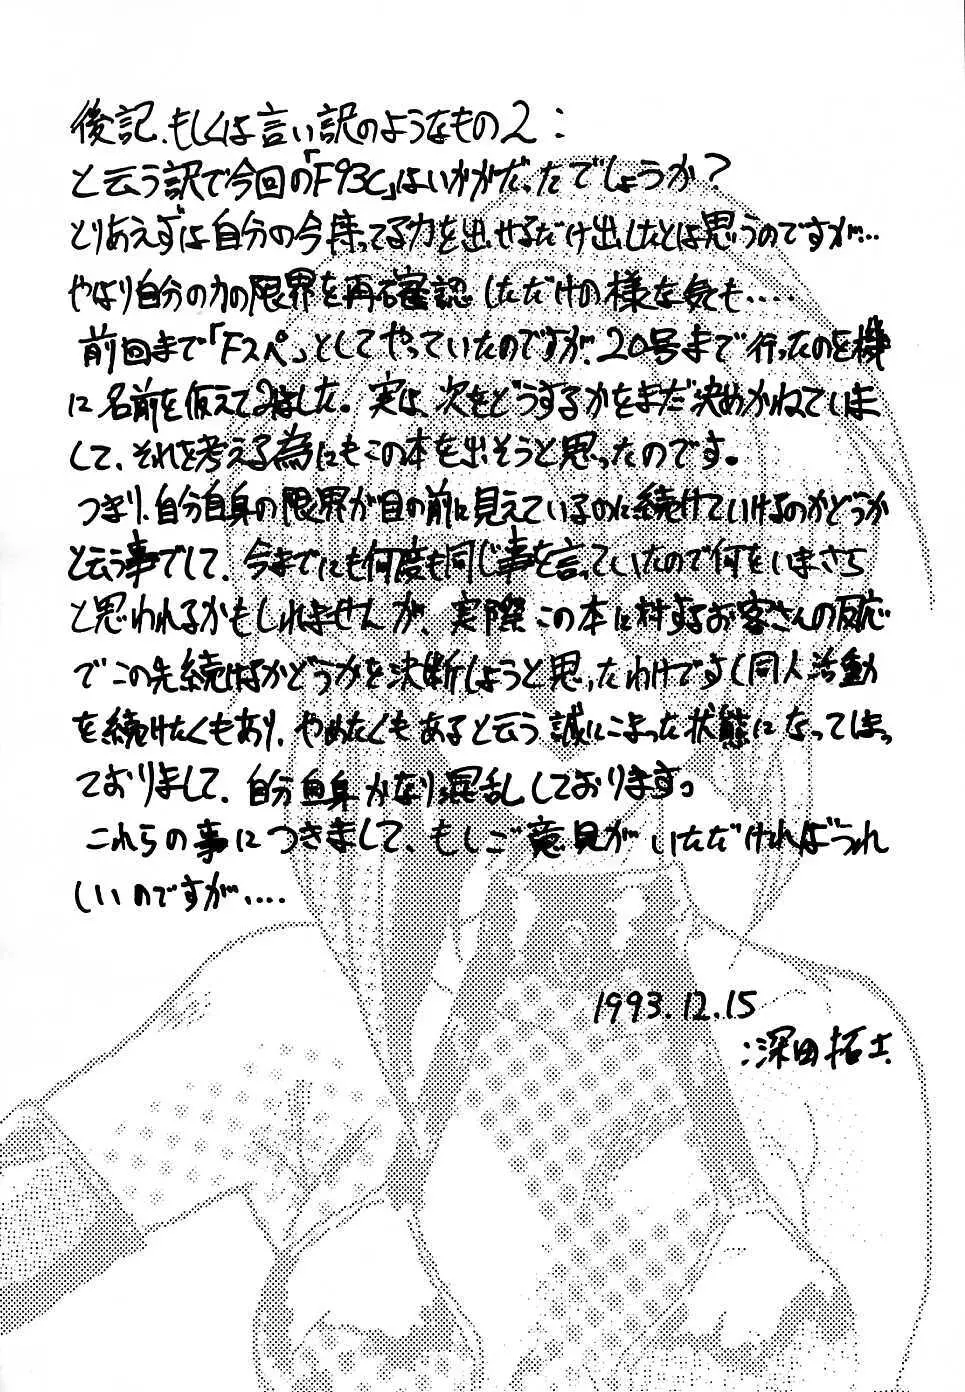 後記、もしくは言い訳のようなもの2:
と云う訳で今回の「F93C」はいかがだったでしょうか?
とりあえずは自分の今持ってる力を出せるだけ出したとは思うのですが…
やはり自分の力の限界を再確認しただけの様な気も‥‥
前回まで「Fスペ」としてやっていたのですが、20号まで行ったのを機
に名前を仮えてみました。実は、次をどうするかをまだ決めかねていま
して、それを考える為にもこの本を出そうと思ったのです。
つまり、自分自身の限界が目の前に見えているのに続けていけるのかどうか
と云う事でして、今までにも何度も同じ事を言っていたので何をいまさら
と思われるかもしれませんが、実際この本に対するお客さんの反応
でこの先続けるかどうかを決断しようと思ったわけです(同人活動
を続けたくもあり、やめたくもあると云う誠にこまった状態になってしまっ
ておりまして、自分自身かなり混乱しております。
これらの事につきまして、もしご意見がいただければうれ
しいのですが‥‥
1993.12.15
:深田拓士